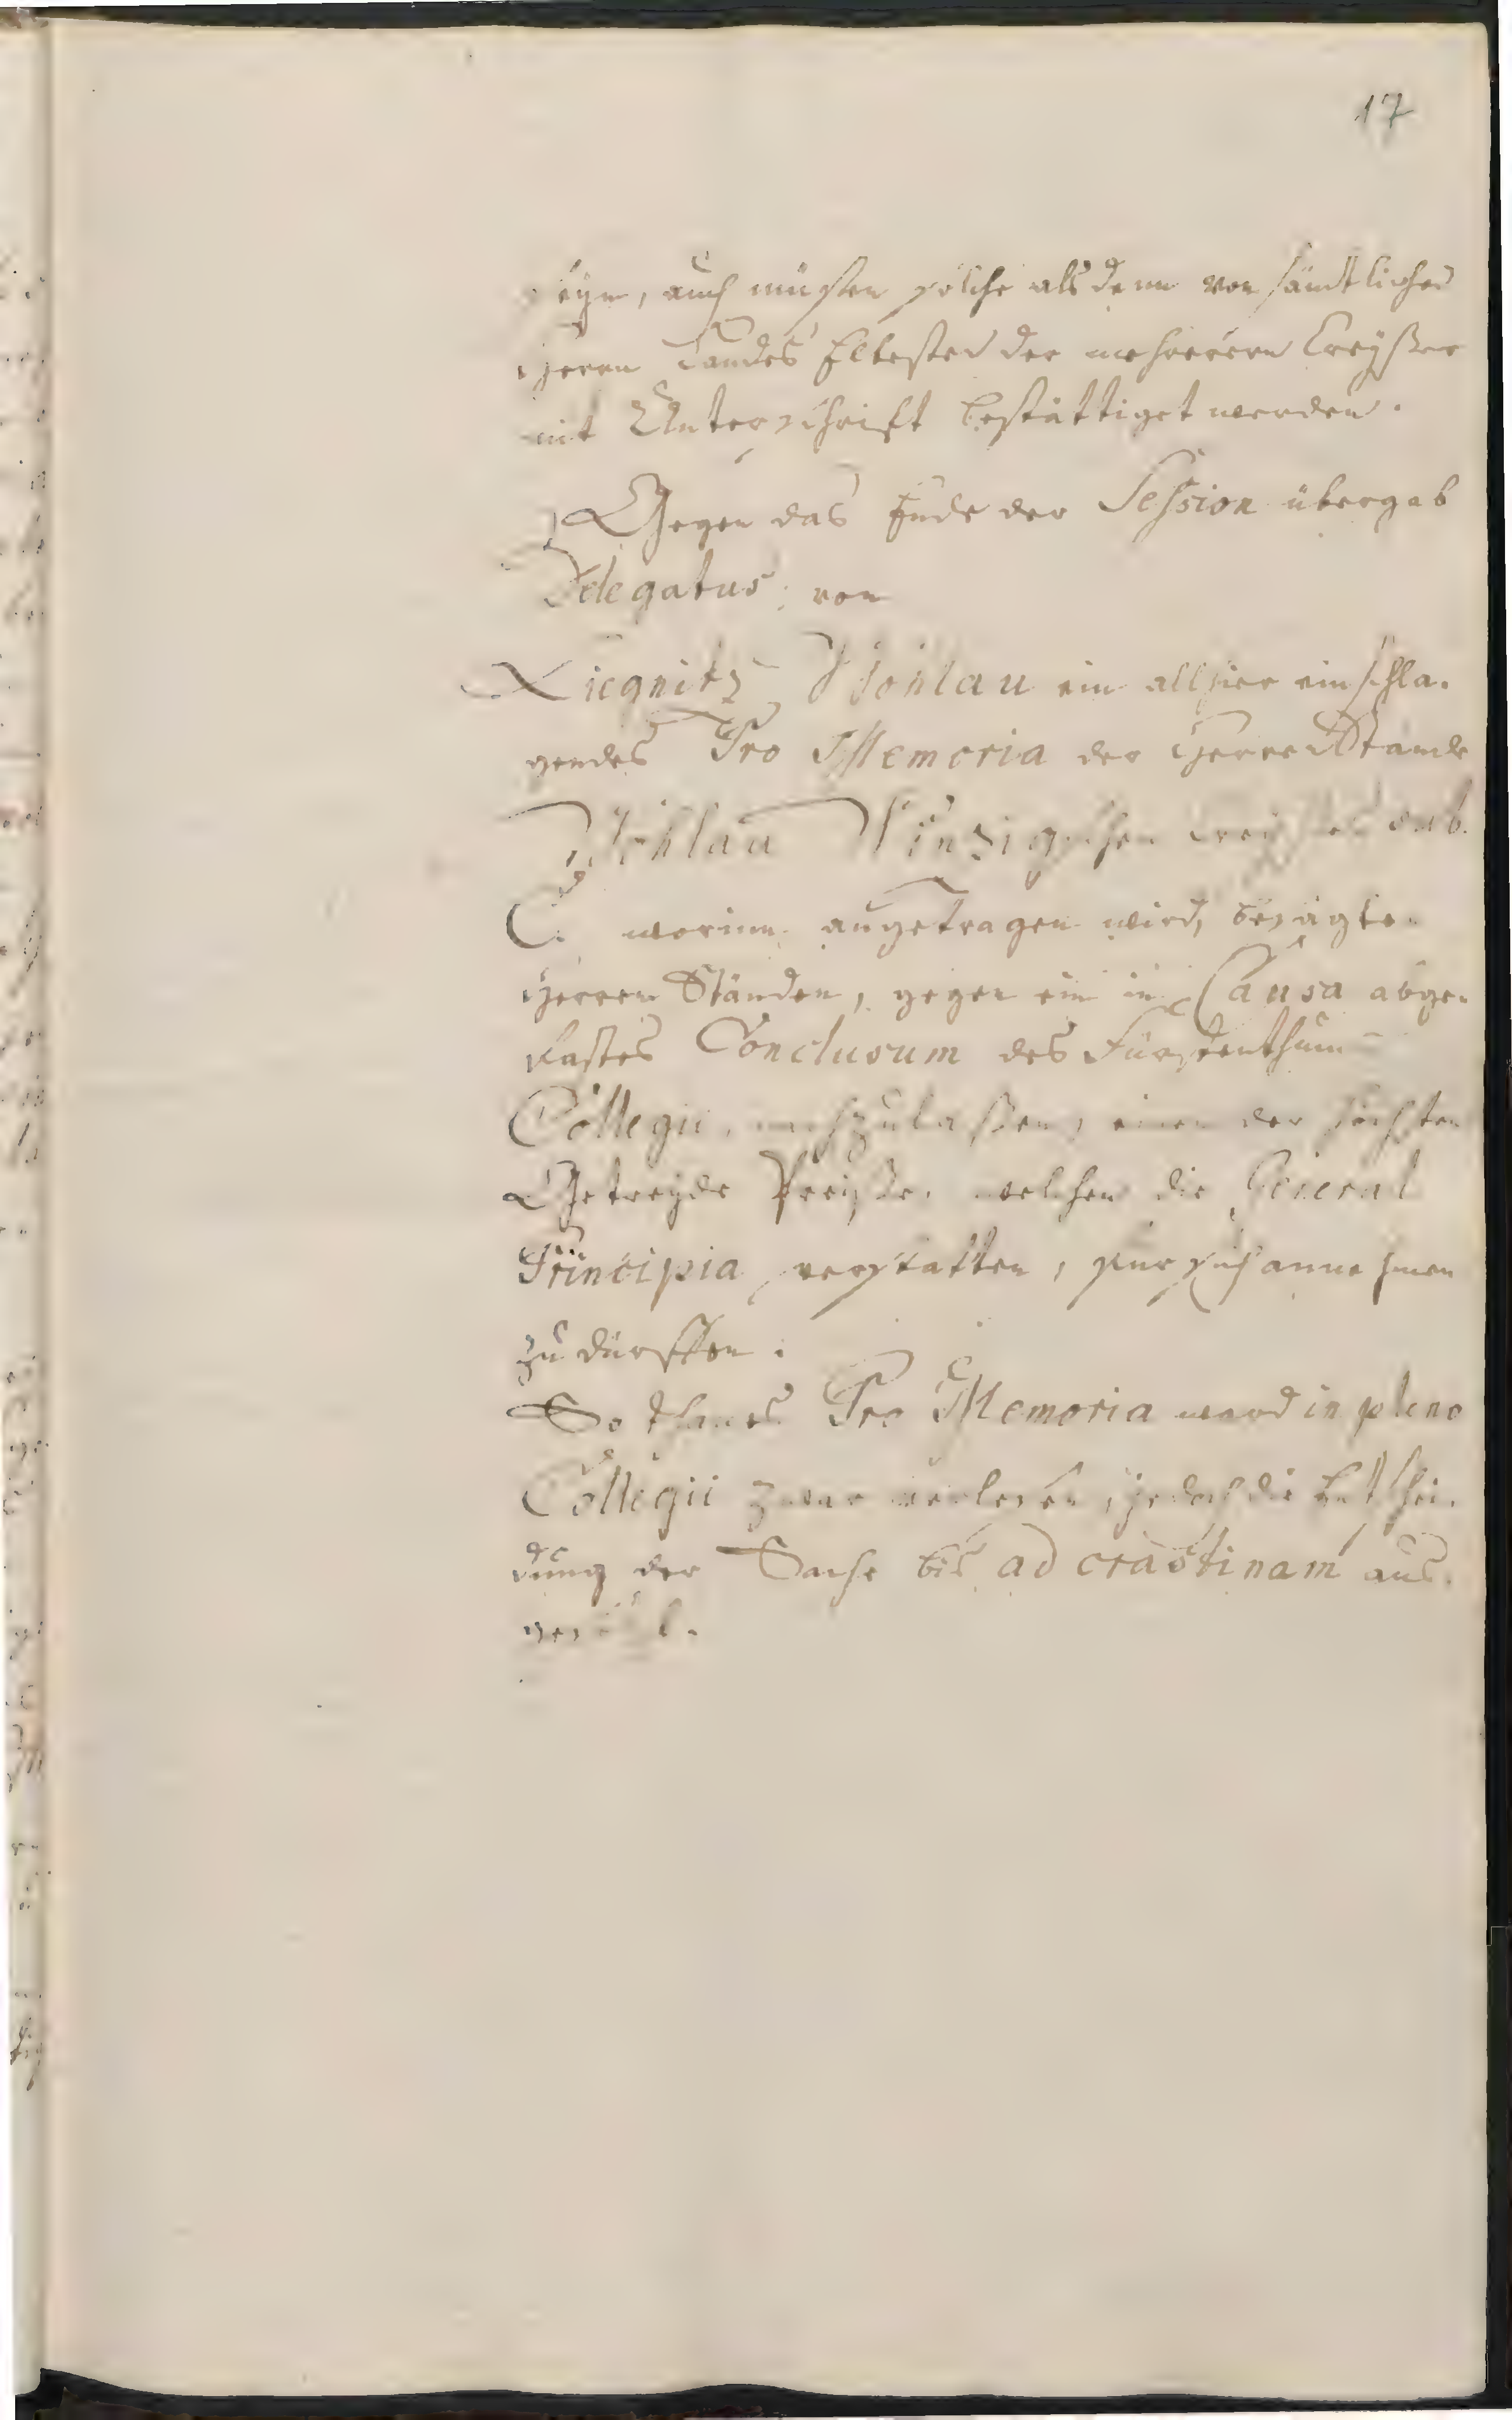 17
seyn, auch müsten solche als denn von sämtlichen
Herrn Landes Eltesten der mehreren Creyßer
mit Unterschrifft bestättiget werden.
Gegen das Ende der Session übergab
Delegatus von
Liegnitz Wohlau ein allhier einschla-
gendes Pro Memoria der Herren Stände
Wohlau Winzigschen Creyßes sub.
C. worinn angetragen wird, besagten
Herren Ständen, gegen ein in Causa abge-
fastes Conclusum des Fürstenthum
Collegii, nachzulaßen, einen der höchsten
Getreyde Preyße, welchen die General
Principia verstatten, fur sich annehmen
zu dürffen.
So thanes Pro Memoria ward in pleno
Collegii zwar verlesen, jedoch die Entschei-
dung der Sache bis ad crastinam aus-